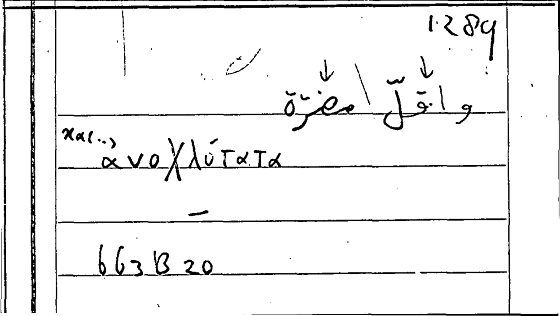 1289
واقلّ مضرّة
και(..)
ανοχλότατα
–
663B 20